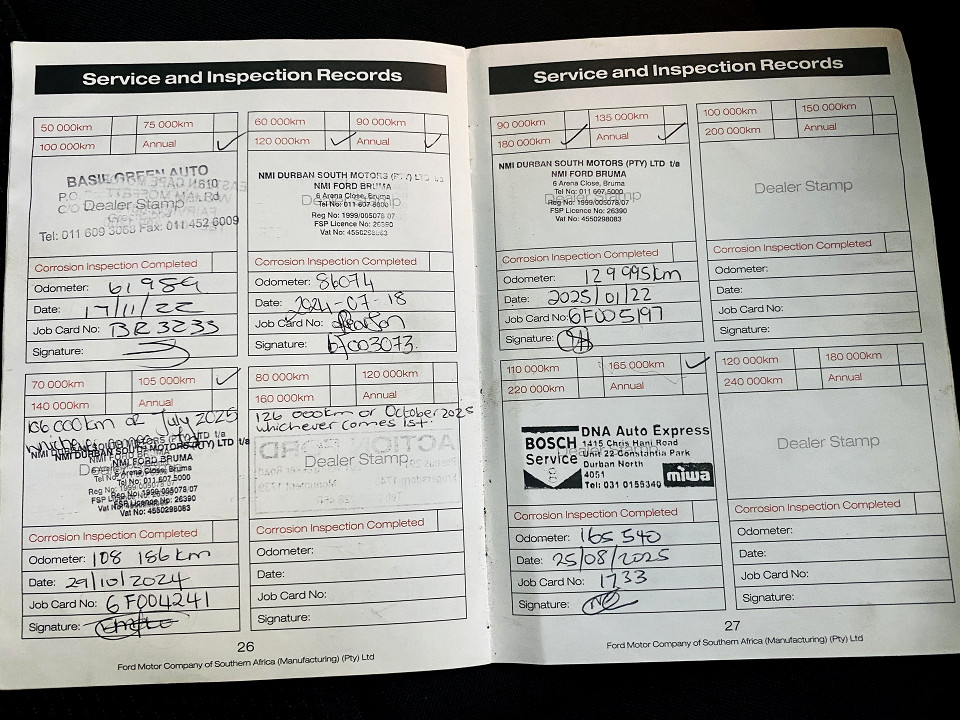 Service and Inspection Records
50 000km 75 000km
100 000km Annual
BASIL GREEN AUTO
1610
P.O.
C/O
Dealer Stamp
Tel: 011 609 3068 Fax: 011 452 6009
Corrosion Inspection Completed
Odometer: 61989
Date: 17/11/22
Job Card No: BR3233
Signature:
60 000km 90 000km
120 000km Annual
NMI DURBAN SOUTH MOTORS (PTY) LTD t/a
NMI FORD BRUMA
6 Arena Close, Bruma
Tel No: 011 607 5000
Reg No: 1999/005078/07
FSP Licence No: 26390
Vat No: 4550298083
Corrosion Inspection Completed
Odometer: 86074
Date: 2024-07-18
Job Card No:
Signature: 6f003073.
70 000km 105 000km
140 000km Annual
July 2025
NMI DURBAN SOUTH MOTORS (PTY) LTD t/a
NMI FORD BRUMA
6 Arena Close, Bruma
Tel No: 011 607 5000
Reg No: 1999/005078/07
FSP Licence No: 26390
Vat No: 4550298083
Corrosion Inspection Completed
Odometer: 108 186 km
Date: 29/10/2024
Job Card No: 6F004241
Signature:
80 000km 120 000km
160 000km Annual
126 000km or October 2025
whichever comes 1st.
ACTION FORD
Dealer Stamp
Corrosion Inspection Completed
Odometer:
Date:
Job Card No:
Signature:
26
Ford Motor Company of Southern Africa (Manufacturing) (Pty) Ltd
Service and Inspection Records
90 000km 135 000km
180 000km Annual
NMI DURBAN SOUTH MOTORS (PTY) LTD t/a
NMI FORD BRUMA
6 Arena Close, Bruma
Tel No: 011 607 5000
Reg No: 1999/005078/07
FSP Licence No: 26390
Vat No: 4550298083
Corrosion Inspection Completed
Odometer: 129 995km
Date: 2025/01/22
Job Card No: 6F005197
Signature:
100 000km 150 000km
200 000km Annual
Dealer Stamp
Corrosion Inspection Completed
Odometer:
Date:
Job Card No:
Signature:
110 000km 165 000km
220 000km Annual
BOSCH
Service
DNA Auto Express
1415 Chris Hani Road
Unit 22 Constantia Park
Durban North
4051
Tel: 031 0155340
miwa
Corrosion Inspection Completed
Odometer: 165 540
Date: 25/08/2025
Job Card No: 1733
Signature:
120 000km 180 000km
240 000km Annual
Dealer Stamp
Corrosion Inspection Completed
Odometer:
Date:
Job Card No:
Signature:
27
Ford Motor Company of Southern Africa (Manufacturing) (Pty) Ltd